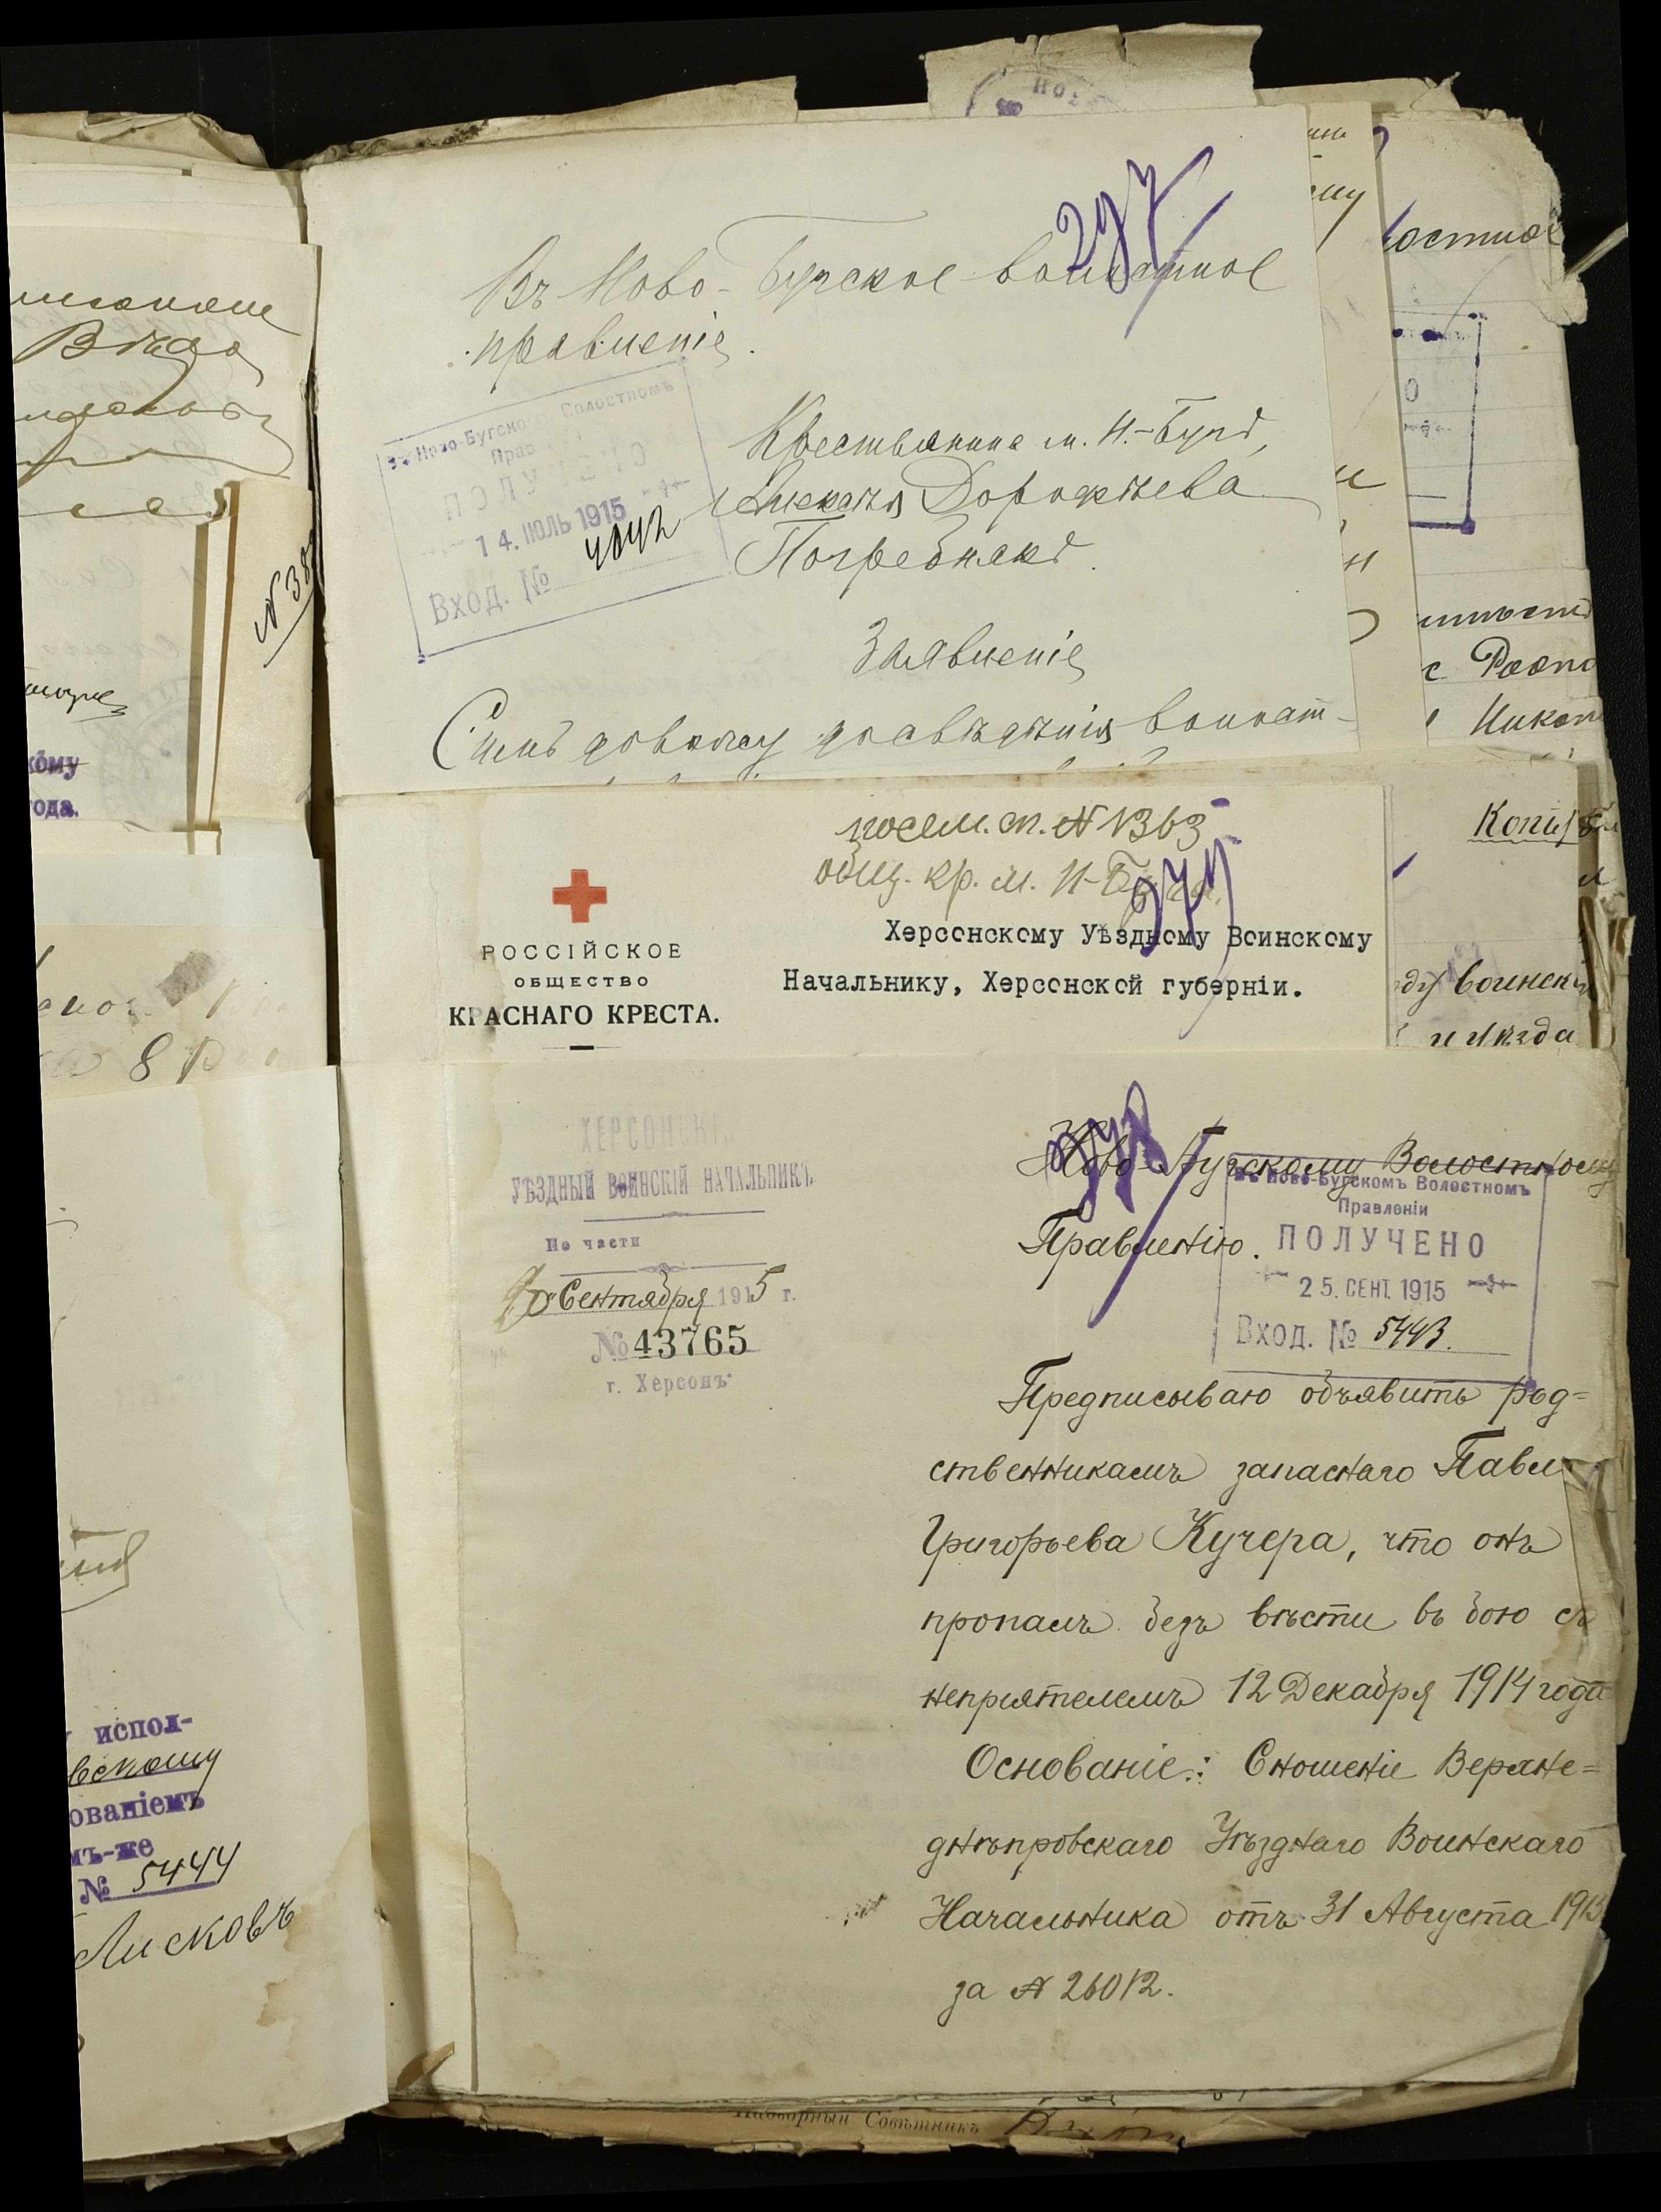 297
Въ Ново-Бугское волостное
правленіе.
Въ Ново-Бугском Волостномъ
ПОЛУЧЕНО
14. ІЮЛЬ 1915
Вход. № 4042
Крестьянина м. Н.-Буга,
Алексѣя Дорофѣева
Погребняка.
Заявленіе
Симъ довожу до свѣдѣнія волост-
N 38
остное
с Распо
Копия
посем. сп. N 1363
общ. кр. м. Н-Буга.
РОССІЙСКОЕ
ОБЩЕСТВО
КРАСНАГО КРЕСТА.
Херсонскому Уѣздному Воинскому
Начальнику, Херсонской губерніи.
воинск
и уѣзда
ХЕРСОНСКІЙ
УѢЗДНЫЙ ВОИНСКІЙ НАЧАЛЬНИКЪ
По части
Сентября 1915 г.
№ 43765
г. Херсонъ
Ново-Бугскому Волостному
Правленію.
Въ Ново-Бугскомъ Волостномъ
Правленіи
ПОЛУЧЕНО
25. СЕНТ. 1915
Вход. № 5443.
Предписываю объявить род=
ственникамъ запаснаго Павла
Григорьева Кучера, что онъ
пропалъ безъ вѣсти въ бою съ
непріятелемъ 12 Декабря 1914 года
Основаніе: Сношеніе Верхне=
днѣпровскаго Уѣзднаго Воинскаго
Начальника отъ 31 Августа 1915
за N 26012.
кому
ода.
8
испол-
вскому
ованіемъ
мъ-же
№ 5444
Лисковъ
Надворный Совѣтникъ